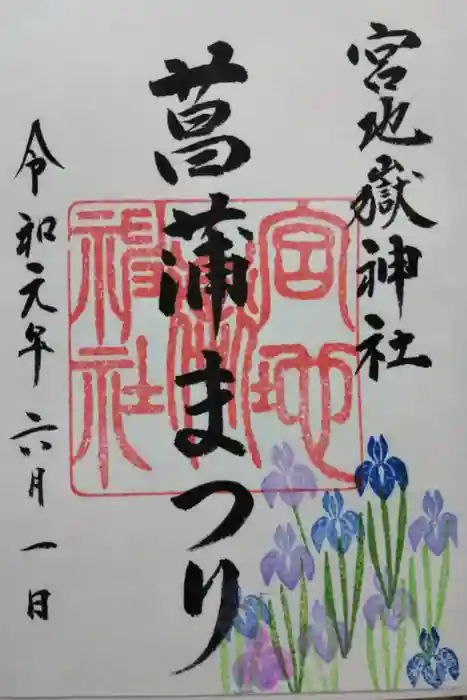 宮地嶽神社
菖蒲まつり
令和元年 六月一日
宮地嶽神社